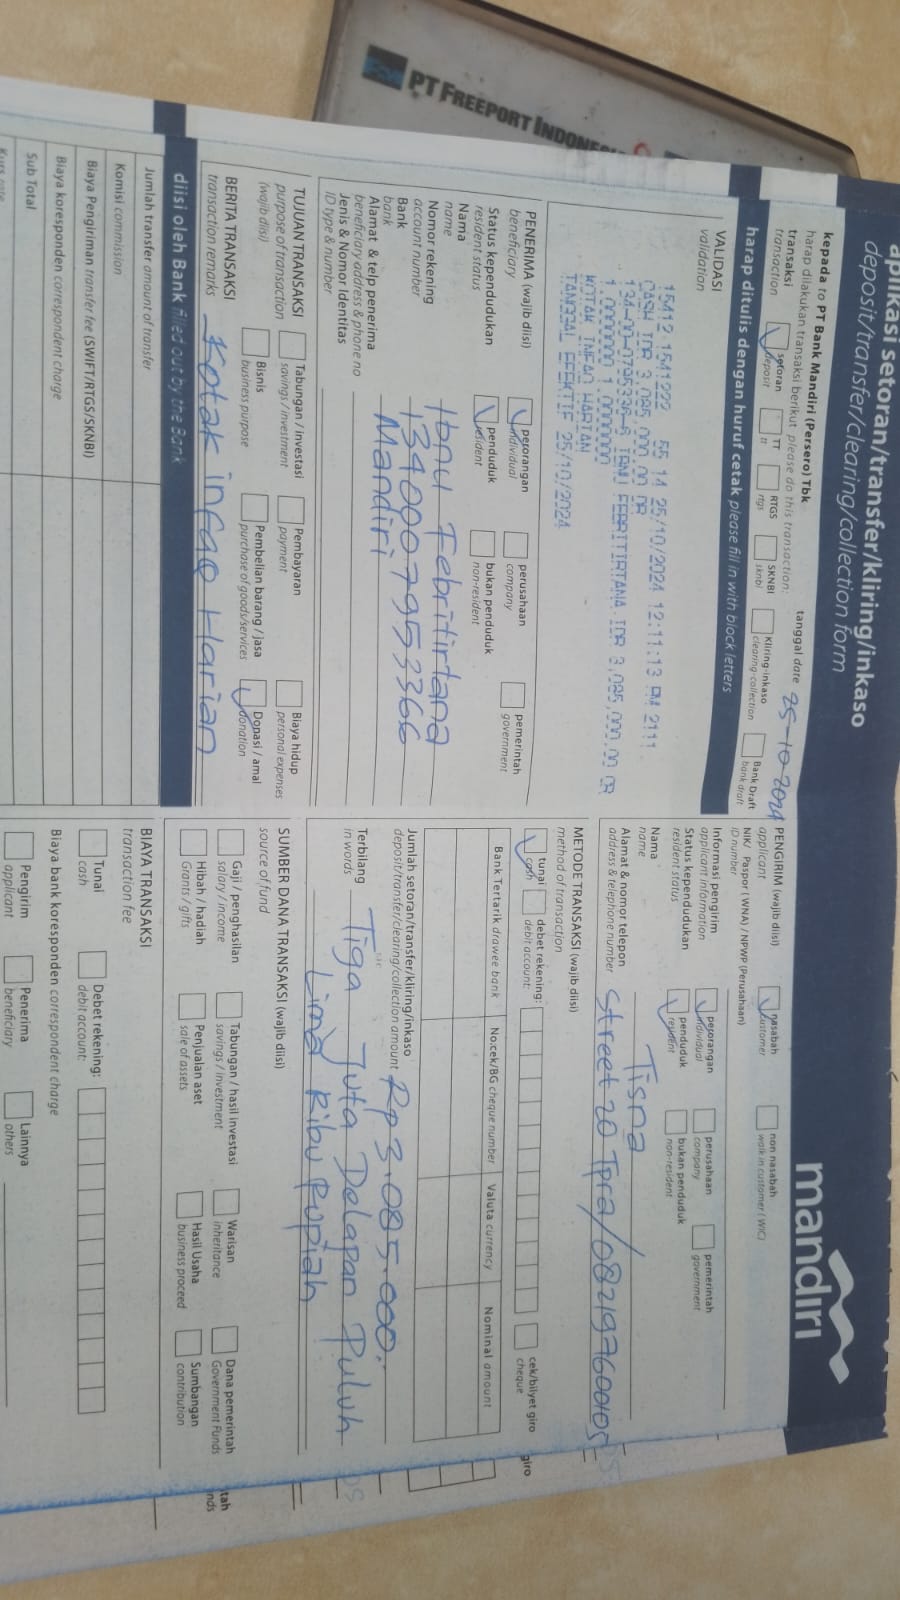 PT FREEPORT INDONESIA
aplikasi setoran/transfer/kliring/inkaso
deposit/transfer/clearing/collection form
mandiri
kepada to PT Bank Mandiri (Persero) Tbk
harap dilakukan transaksi berikut please do this transaction:
tanggal date 25-10-2024
transaksi
transaction
setoran
deposit
TT
tt
RTGS
rtgs
SKNBI
sknbi
Kliring-inkaso
clearing-collection
Bank Draft
bank draft
harap ditulis dengan huruf cetak please fill in with block letters
VALIDASI
validation
15412 1541222 55 14 25/10/2024 12:11:13 PM 2111
CASH IDR 3,085,000.00 CR
IDR 3,085,000.00 CR
1.0000000 1.0000000
KOTAK INFAQ HARIAN
TANGGAL EFEKTIF 25/10/2024
PENERIMA (wajib diisi)
beneficiary
perorangan
individual
perusahaan
company
pemerintah
government
Status kependudukan
resident status
penduduk
resident
bukan penduduk
non-resident
Nama
name
Ibnu Febritirtana
Nomor rekening
account number
1340007953366
Bank
bank
Mandiri
Alamat & telp penerima
beneficiary address & phone no
Jenis & Nomor Identitas
ID type & number
TUJUAN TRANSAKSI
purpose of transaction
(wajib diisi)
Tabungan / investasi
savings / investment
Pembayaran
payment
Biaya hidup
personal expenses
Bisnis
business purpose
Pembelian barang / jasa
purchase of goods/services
Donasi / amal
donation
BERITA TRANSAKSI
transaction remarks
Kotak infaq Harian
diisi oleh Bank filled out by the Bank
Jumlah transfer amount of transfer
Komisi commission
Biaya Pengiriman transfer fee (SWIFT/RTGS/SKNBI)
Biaya koresponden correspondent charge
Sub Total
PENGIRIM (wajib diisi)
applicant
nasabah
customer
non nasabah
walk in customer (WIC)
NIK/ Paspor (WNA) / NPWP (Perusahaan)
ID number
Informasi pengirim
applicant information
perorangan
individual
perusahaan
company
pemerintah
government
Status kependudukan
resident status
penduduk
resident
bukan penduduk
non-resident
Nama
name
Tisna
Alamat & nomor telepon
address & telephone number
Street 20 Tpra/082197600105
METODE TRANSAKSI (wajib diisi)
method of transaction
tunai
cash
debet rekening:
debit account:
cek/bilyet giro
cheque
giro
Bank Tertarik drawee bank
No.cek/BG cheque number
Valuta currency
Nominal amount
Jumlah setoran/transfer/kliring/inkaso
deposit/transfer/clearing/collection amount
Rp 3.085.000.-
Terbilang
in words
Tiga Juta Delapan Puluh
Lima Ribu Rupiah
SUMBER DANA TRANSAKSI (wajib diisi)
source of fund
Gaji / penghasilan
salary / income
Tabungan / hasil investasi
savings / investment
Warisan
inheritance
Dana pemerintah
Government Funds
Hibah / hadiah
Grants / gifts
Penjualan aset
sale of assets
Hasil Usaha
business proceed
Sumbangan
contribution
BIAYA TRANSAKSI
transaction fee
Tunai
cash
Debet rekening:
debit account:
Biaya bank koresponden correspondent charge
Pengirim
applicant
Penerima
beneficiary
Lainnya
others